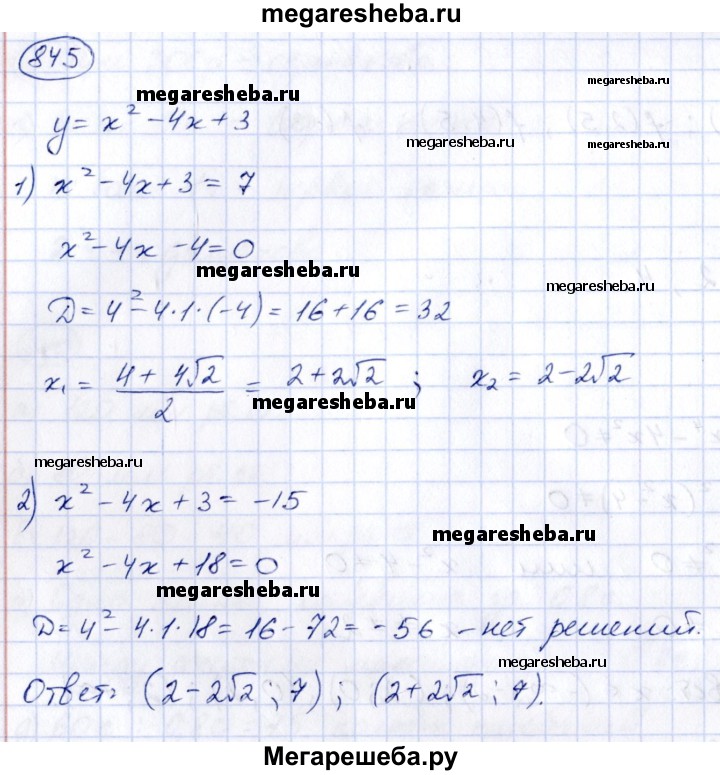 megaresheba.ru
845
megaresheba.ru
megaresheba.ru
y = x² - 4x + 3
megaresheba.ru
megaresheba.ru
1) x² - 4x + 3 = 7
x² - 4x - 4 = 0
megaresheba.ru
D = 4² - 4·1·(-4) = 16 + 16 = 32
megaresheba.ru
x₁ = (4 + 4√2)/2 = 2 + 2√2 ; x₂ = 2 - 2√2
megaresheba.ru
megaresheba.ru
2) x² - 4x + 3 = -15
megaresheba.ru
x² - 4x + 18 = 0
megaresheba.ru
D = 4² - 4·1·18 = 16 - 72 = -56 - нет решений.
megaresheba.ru
Ответ: (2 - 2√2 ; 7) ; (2 + 2√2 ; 7).
Мегарешеба.ру